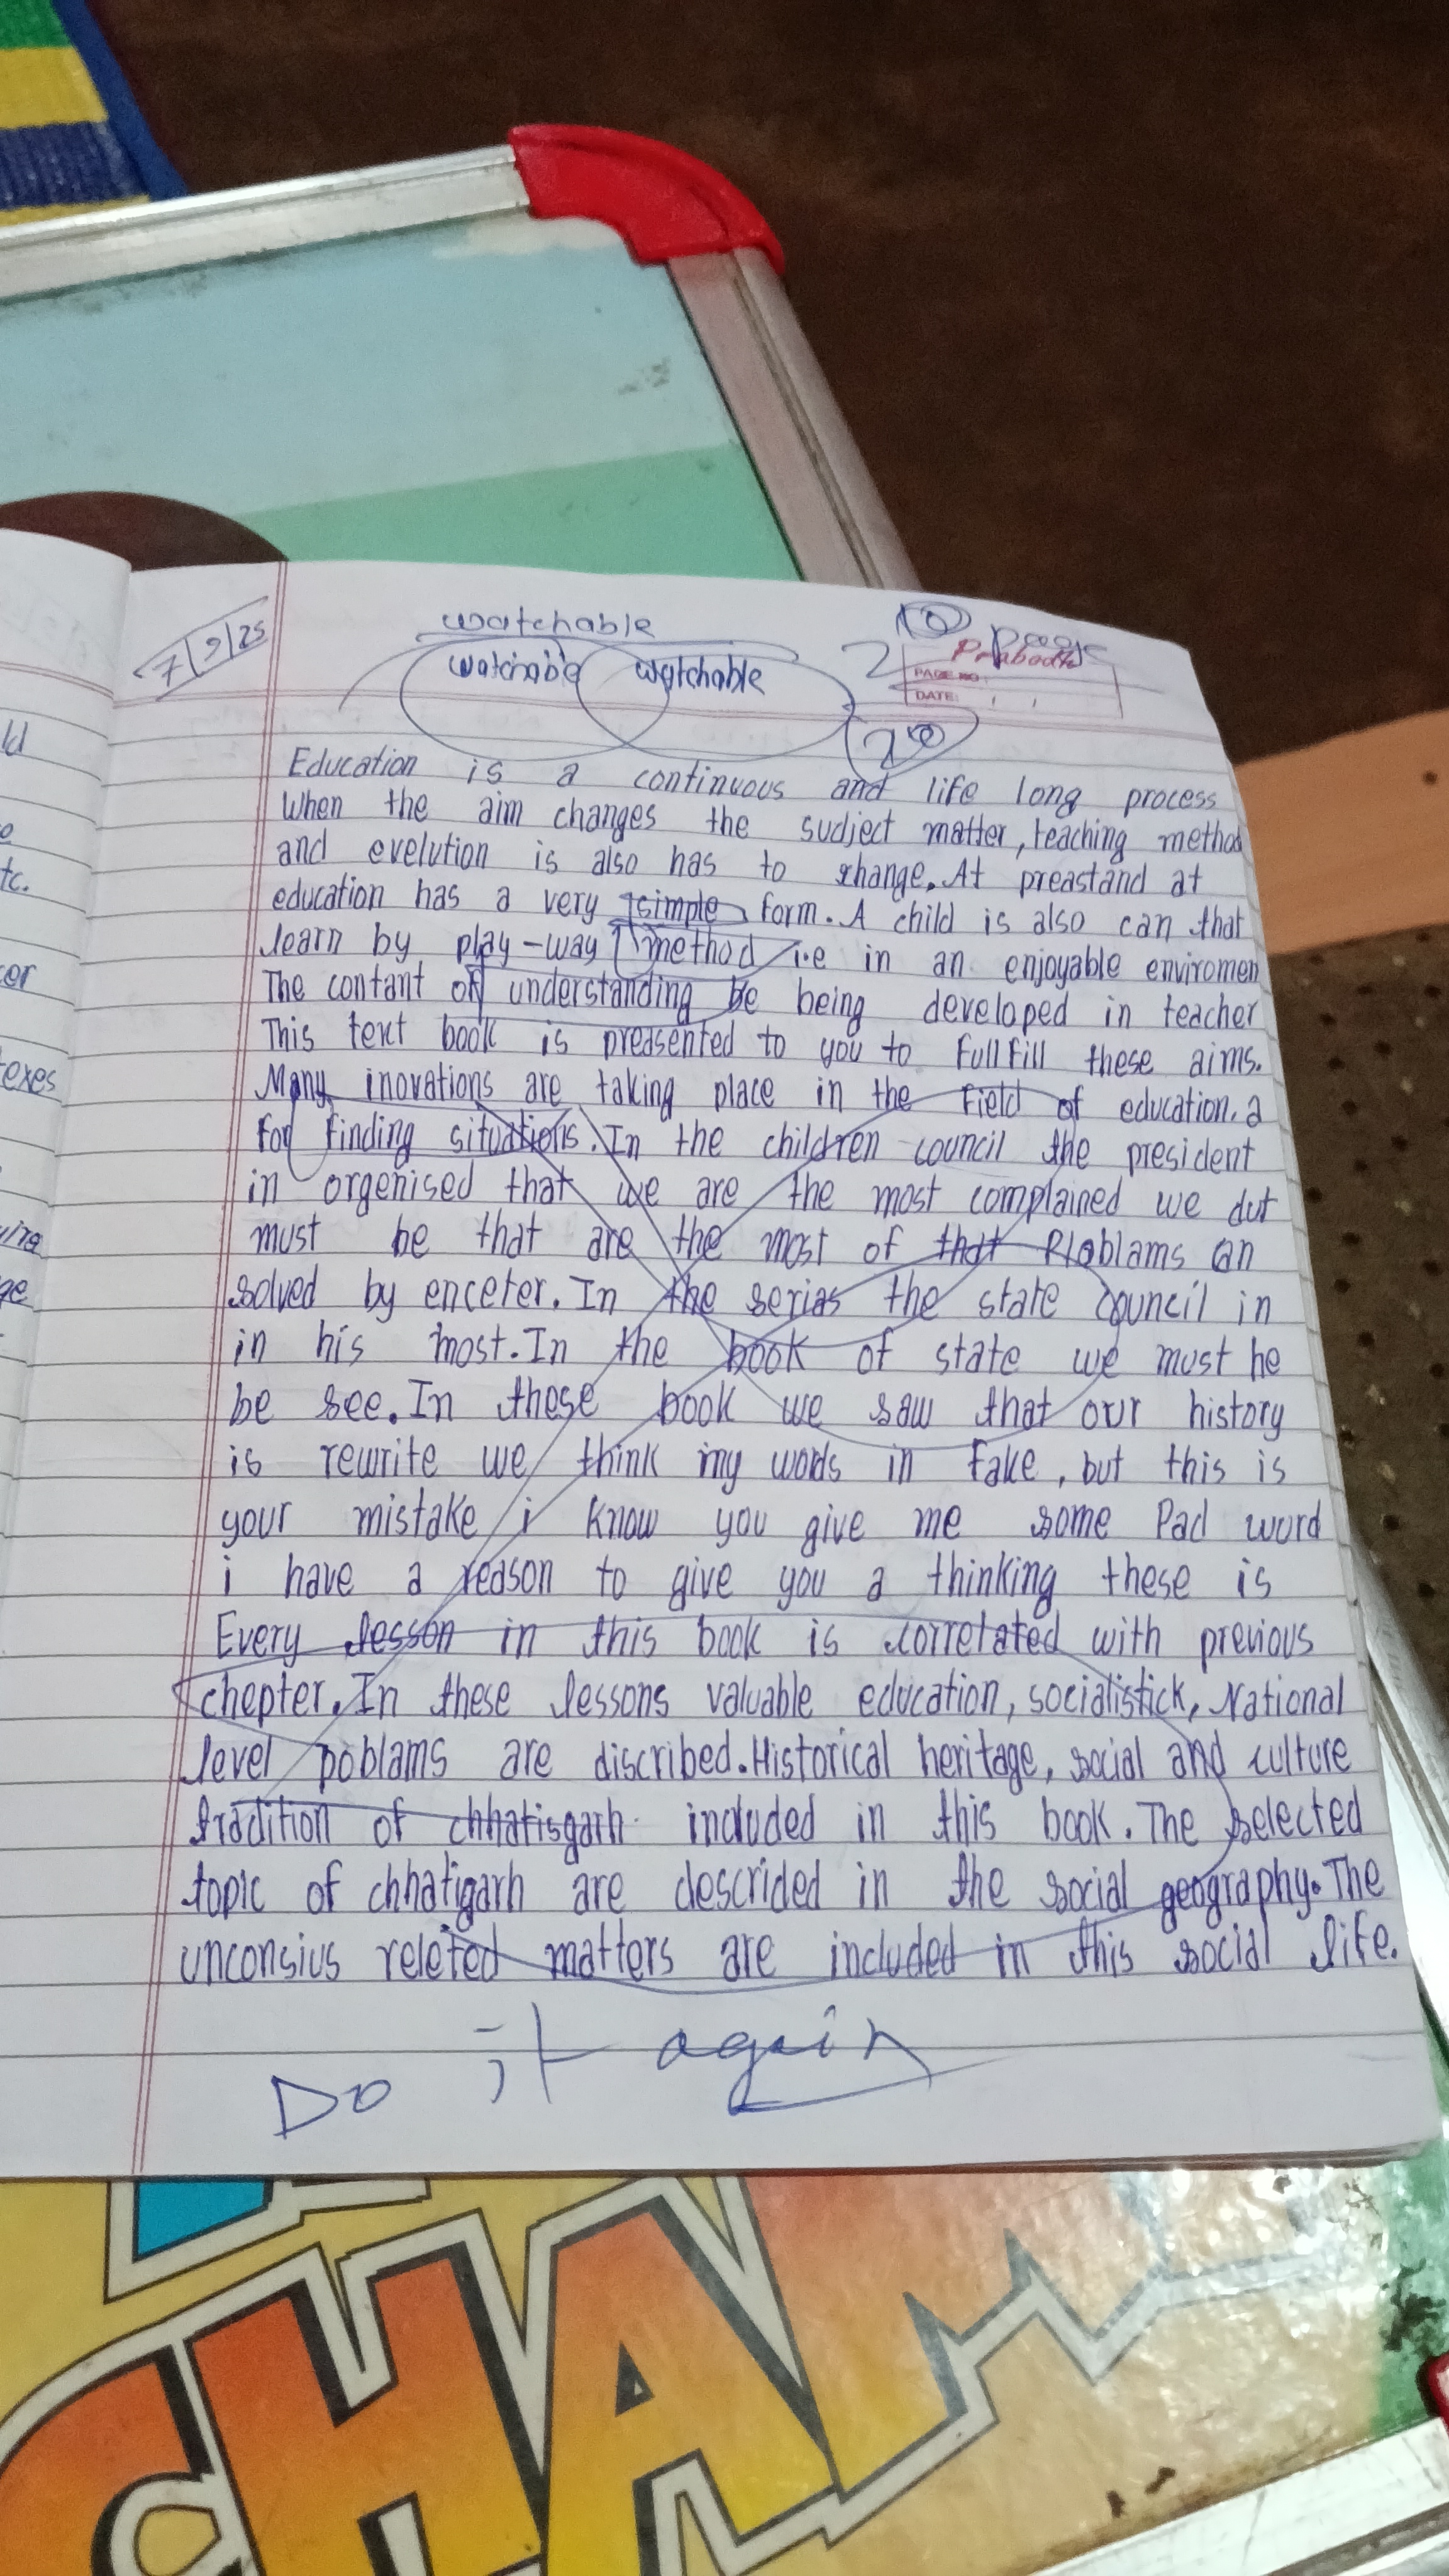 7/9/25
watchable
watchable watchable
10 page
2
Prabodh
PAGE NO.:
DATE: / /
20
Education is a continuous and life long process
When the aim changes the sudject matter, teaching method
and evelution is also has to change. At preastand at
education has a very simple form. A child is also can that
learn by play-way method i.e in an enjoyable enviromen
The contant of understanding be being developed in teacher
This text book is preasented to you to fullfill these aims.
Many inovations are taking place in the field of education. a
for finding situations. In the children council the president
in orgenised that we are the most complained we dut
must be that are the most of that Ploblams an
solved by enceter. In the serias the state council in
in his most. In the book of state we must he
be see. In these book we saw that our history
is rewrite we think my words in fake, but this is
your mistake i know you give me some Pad word
i have a reason to give you a thinking these is
Every lesson in this book is corretated with previous
chepter. In these lessons valuable education, socialistick, National
level poblams are discribed. Historical heritage, social and culture
tradition of chhatisgarh included in this book. The selected
topic of chhatigarh are descrided in the social geography. The
unconsius releted matters are included in this social life.
Do it again
ld
tc.
er
texes
ge
CHA